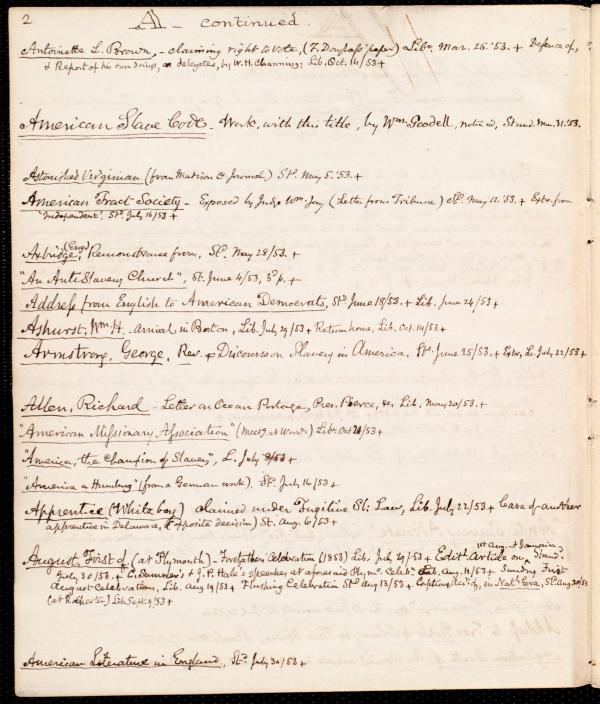 2
A - continued.
Antoinette L. Brown, - claiming right to vote, (F. Douglass' paper) Libr. Mar. 25. '53. + Defence of,
+ Report of his own doings, as delegates, by W. H. Channing: Lib. Oct. 14/53 +
American Slave Code - Work, with this title, by Wm. Goodell, noticed, Stand. Mar. 31. '53.
Astonished Virginian (from Madison Co Journal) Std. May 5. '53. +
American Tract Society - Exposed by Judge Wm. Jay (Letter from Tribune) Std. May 12. '53. + Extr. from
'Independent', Std. July 16/53 +
Axbridge, (Eng.) Remonstrance from, Std. May 28/53. +
"An Anti Slavery Church", St. June 4/53, 3d p. +
Address from English to American Democrats, Std June 18/53. + Lib. June 24/53 +
Ashurst, Wm. H. - arrival in Boston, Lib. July 29/53 + Return home, Lib. Oct. 14/53 +
Armstrong, George, Rev. - Discourse on Slavery in America, Std. June 25/53 + Extr, L. July 22/53 +
Allen, Richard - Letter on Ocean Postage, Pres. Pierce, &c, Lib. May 20/53. +
"American Missionary Association" (Meetg. at Worcr.) Libr. Oct 28/53 +
"America, the Champion of Slavery", L. July 8/53 +
"America a Humbug" (from a German work). St. July 16/53 +
Apprentice (White boy) claimed under Fugitive Sl. Law, Lib. July 22/53 + Case of another
apprentice in Delaware, (opposite decision) St. Aug. 6/53 +
August, First of (at Plymouth) - Forefathers' Celebration (1853) Lib. July 29/53 + Edit. Article on 1st Aug. & Jamaica, Stand.
July 30/53. + C. Sumner's & J. P. Hale's speeches at aforesaid Plymo. Celebn. Lib. Aug. 12/53 + Sundry First
August Celebrations, Lib. Aug 19/53 + Flushing Celebration Std Aug 13/53 + in Natl. Era, St. Aug 20/53
(at Rochester) Lib. Sept. 9/53 +
American Literature in England, Std. July 30/53 +